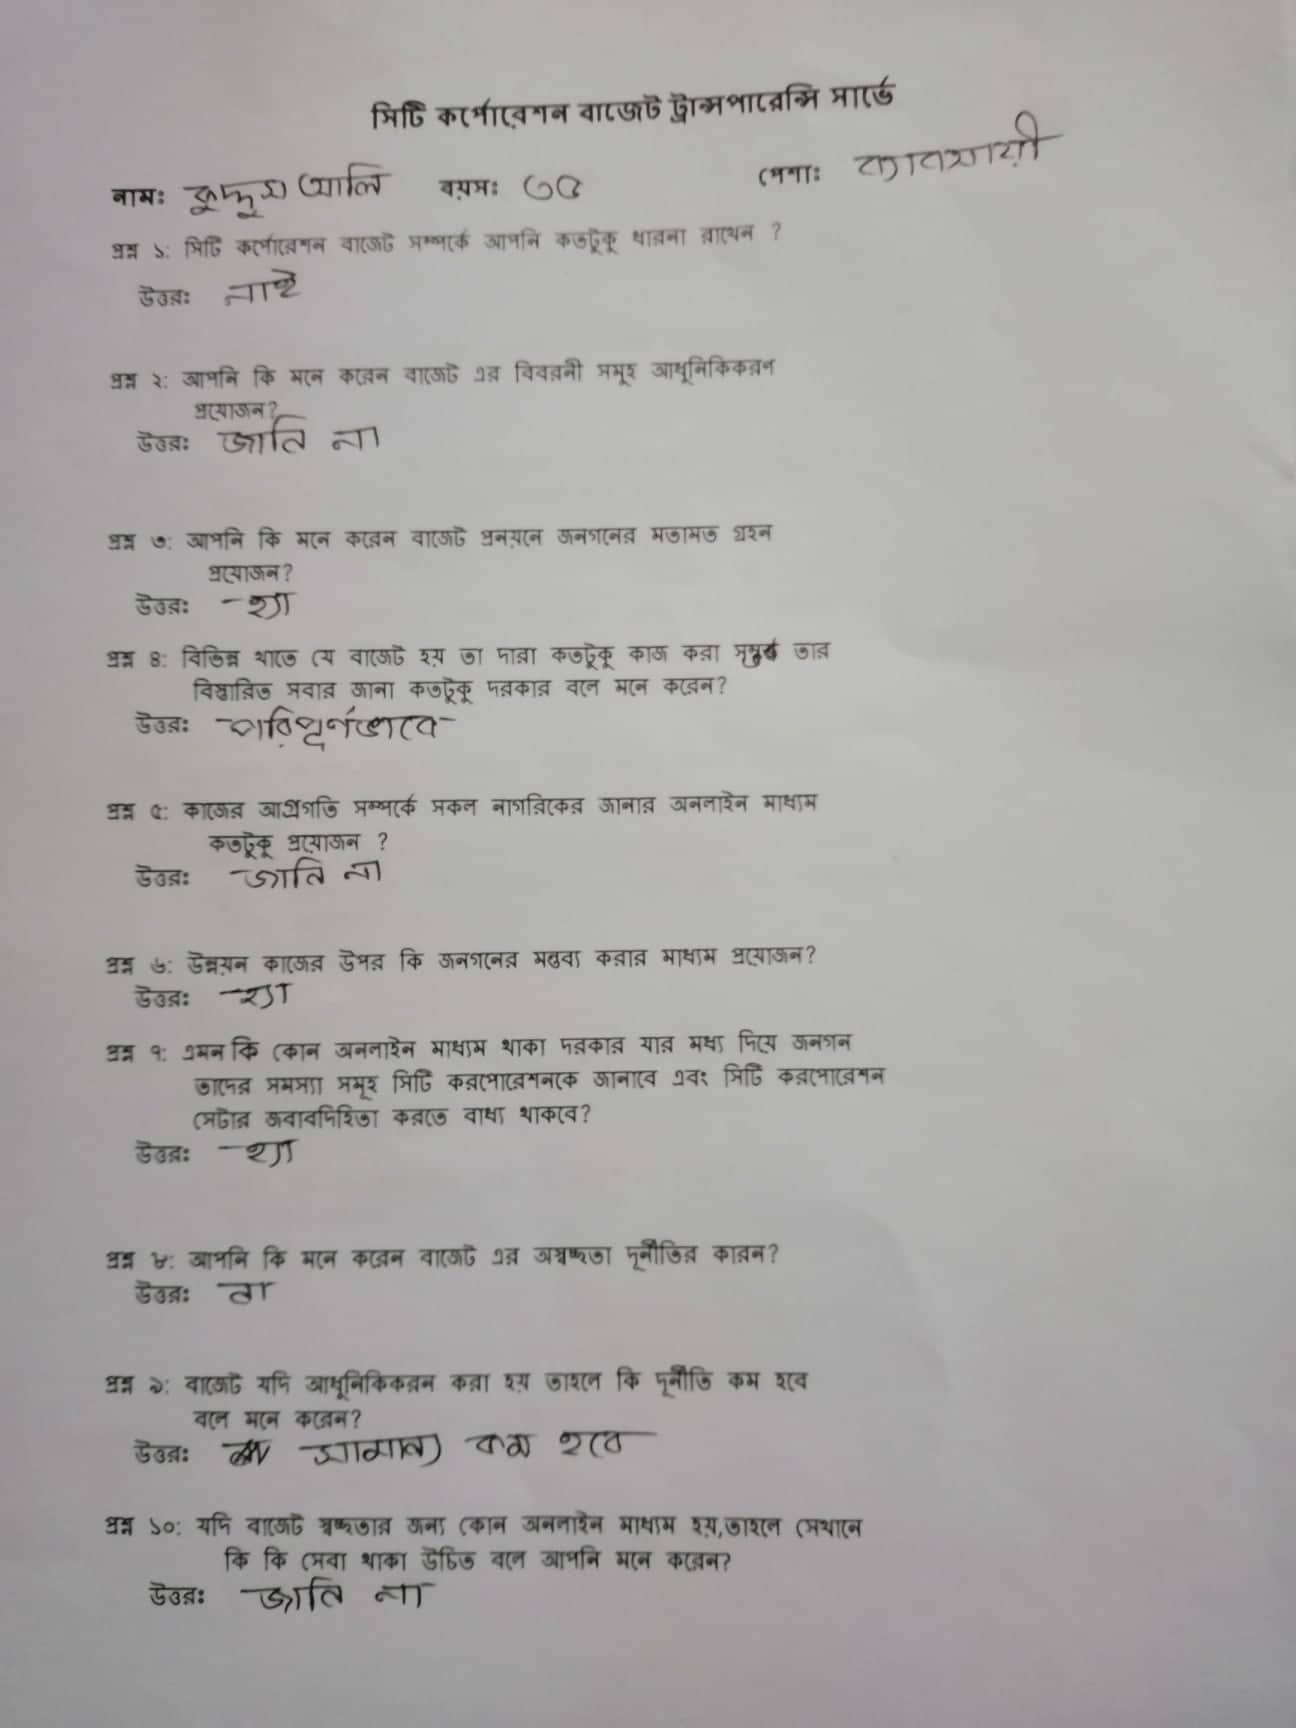 সিটি কর্পোরেশন বাজেট ট্রান্সপারেন্সি সার্ভে
নামঃ কুদ্দুস আলি বয়সঃ ৩৫ পেশাঃ ব্যাবসায়ী
প্রশ্ন ১: সিটি কর্পোরেশন বাজেট সম্পর্কে আপনি কতটুকু ধারনা রাখেন ?
উত্তরঃ নাই
প্রশ্ন ২: আপনি কি মনে করেন বাজেট এর বিবরনী সমূহ আধুনিকিকরণ
প্রয়োজন?
উত্তরঃ জানি না
প্রশ্ন ৩: আপনি কি মনে করেন বাজেট প্রনয়নে জনগনের মতামত গ্রহন
প্রয়োজন?
উত্তরঃ হ্যা
প্রশ্ন ৪: বিভিন্ন খাতে যে বাজেট হয় তা দারা কতটুকু কাজ করা সম্ভব তার
বিস্তারিত সবার জানা কতটুকু দরকার বলে মনে করেন?
উত্তরঃ পরিপূর্ণভাবে
প্রশ্ন ৫: কাজের আগ্রগতি সম্পর্কে সকল নাগরিকের জানার অনলাইন মাধ্যম
কতটুকু প্রয়োজন ?
উত্তরঃ জানি না
প্রশ্ন ৬: উন্নয়ন কাজের উপর কি জনগনের মন্তব্য করার মাধ্যম প্রয়োজন?
উত্তরঃ হ্যা
প্রশ্ন ৭: এমন কি কোন অনলাইন মাধ্যম থাকা দরকার যার মধ্য দিয়ে জনগন
তাদের সমস্যা সমূহ সিটি করপোরেশনকে জানাবে এবং সিটি করপোরেশন
সেটার জবাবদিহিতা করতে বাধ্য থাকবে?
উত্তরঃ হ্যা
প্রশ্ন ৮: আপনি কি মনে করেন বাজেট এর অস্বচ্ছতা দূর্নীতির কারন?
উত্তরঃ না
প্রশ্ন ৯: বাজেট যদি আধুনিকিকরন করা হয় তাহলে কি দূর্নীতি কম হবে
বলে মনে করেন?
উত্তরঃ সামান্য কম হবে
প্রশ্ন ১০: যদি বাজেট স্বচ্ছতার জন্য কোন অনলাইন মাধ্যম হয়,তাহলে সেখানে
কি কি সেবা থাকা উচিত বলে আপনি মনে করেন?
উত্তরঃ জানি না